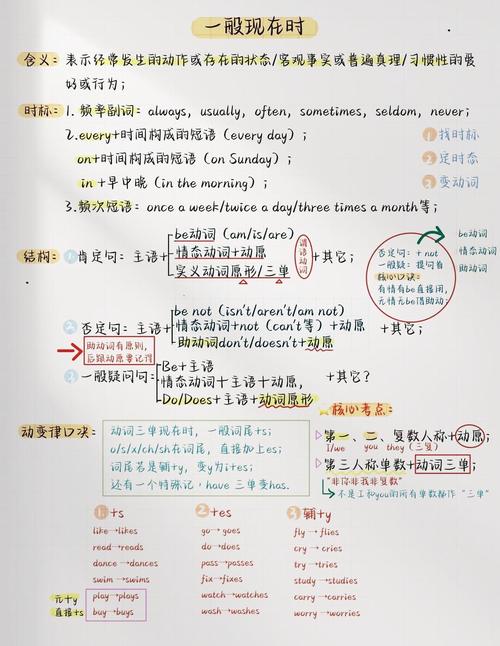 一般现在时
含义：表示经常发生的动作或存在的状态/客观事实或普遍真理/习惯性的爱
好或行为；
时标：1. 频率副词：always, usually, often, sometimes, seldom, never；
2.every+时间构成的短语（every day）；
on+时间构成的短语（on Sunday）；
in +早中晚（in the morning）；
3.频次短语：once a week/twice a day/three times a month等；
1找时标
2定时态
3变动词
结构：1肯定句：主语+
be动词（am/is/are）
情态动词+动原
实义动词原形/三单
谓语动词
+其它；
否定句：+ not
一般疑：提句首
核心口诀：
有情有be直接用，
无情无be借助动。
be动词
情态动词
助动词
2否定句：主语+
be not（isn't/aren't/am not）
情态动词+not（can't等）+动原
助动词don't/doesn't+动原
+其它；
助动词有原则，
后跟动原要记得
3一般疑问句：
Be+主语
情态动词+主语+动原，
Do/Does+主语+动词原形
+其它？
动变律口决：
动词三单现在时，一般词尾+s；
o/s/x/ch/sh在词尾，直接加上es；
词尾若是辅+y，变y为i+es；
还有一个特殊记，have 三单变has.
核心考点：
第一、二、复数人称+动原；
I/we you they（三复）
第三人称单数+动词三单；
"非你非我非复数"
不是I和you的所有单数都作"三单"
1+s
like→likes
read→reads
dance→dances
swim→swims
play→plays
buy→buys
元+y
直接+s
2+es
go→goes
do→does
pass→passes
fix→fixes
watch→watches
wash→washes
3辅+y
fly→flies
cry→cries
try→tries
study→studies
carry→carries
worry→worries